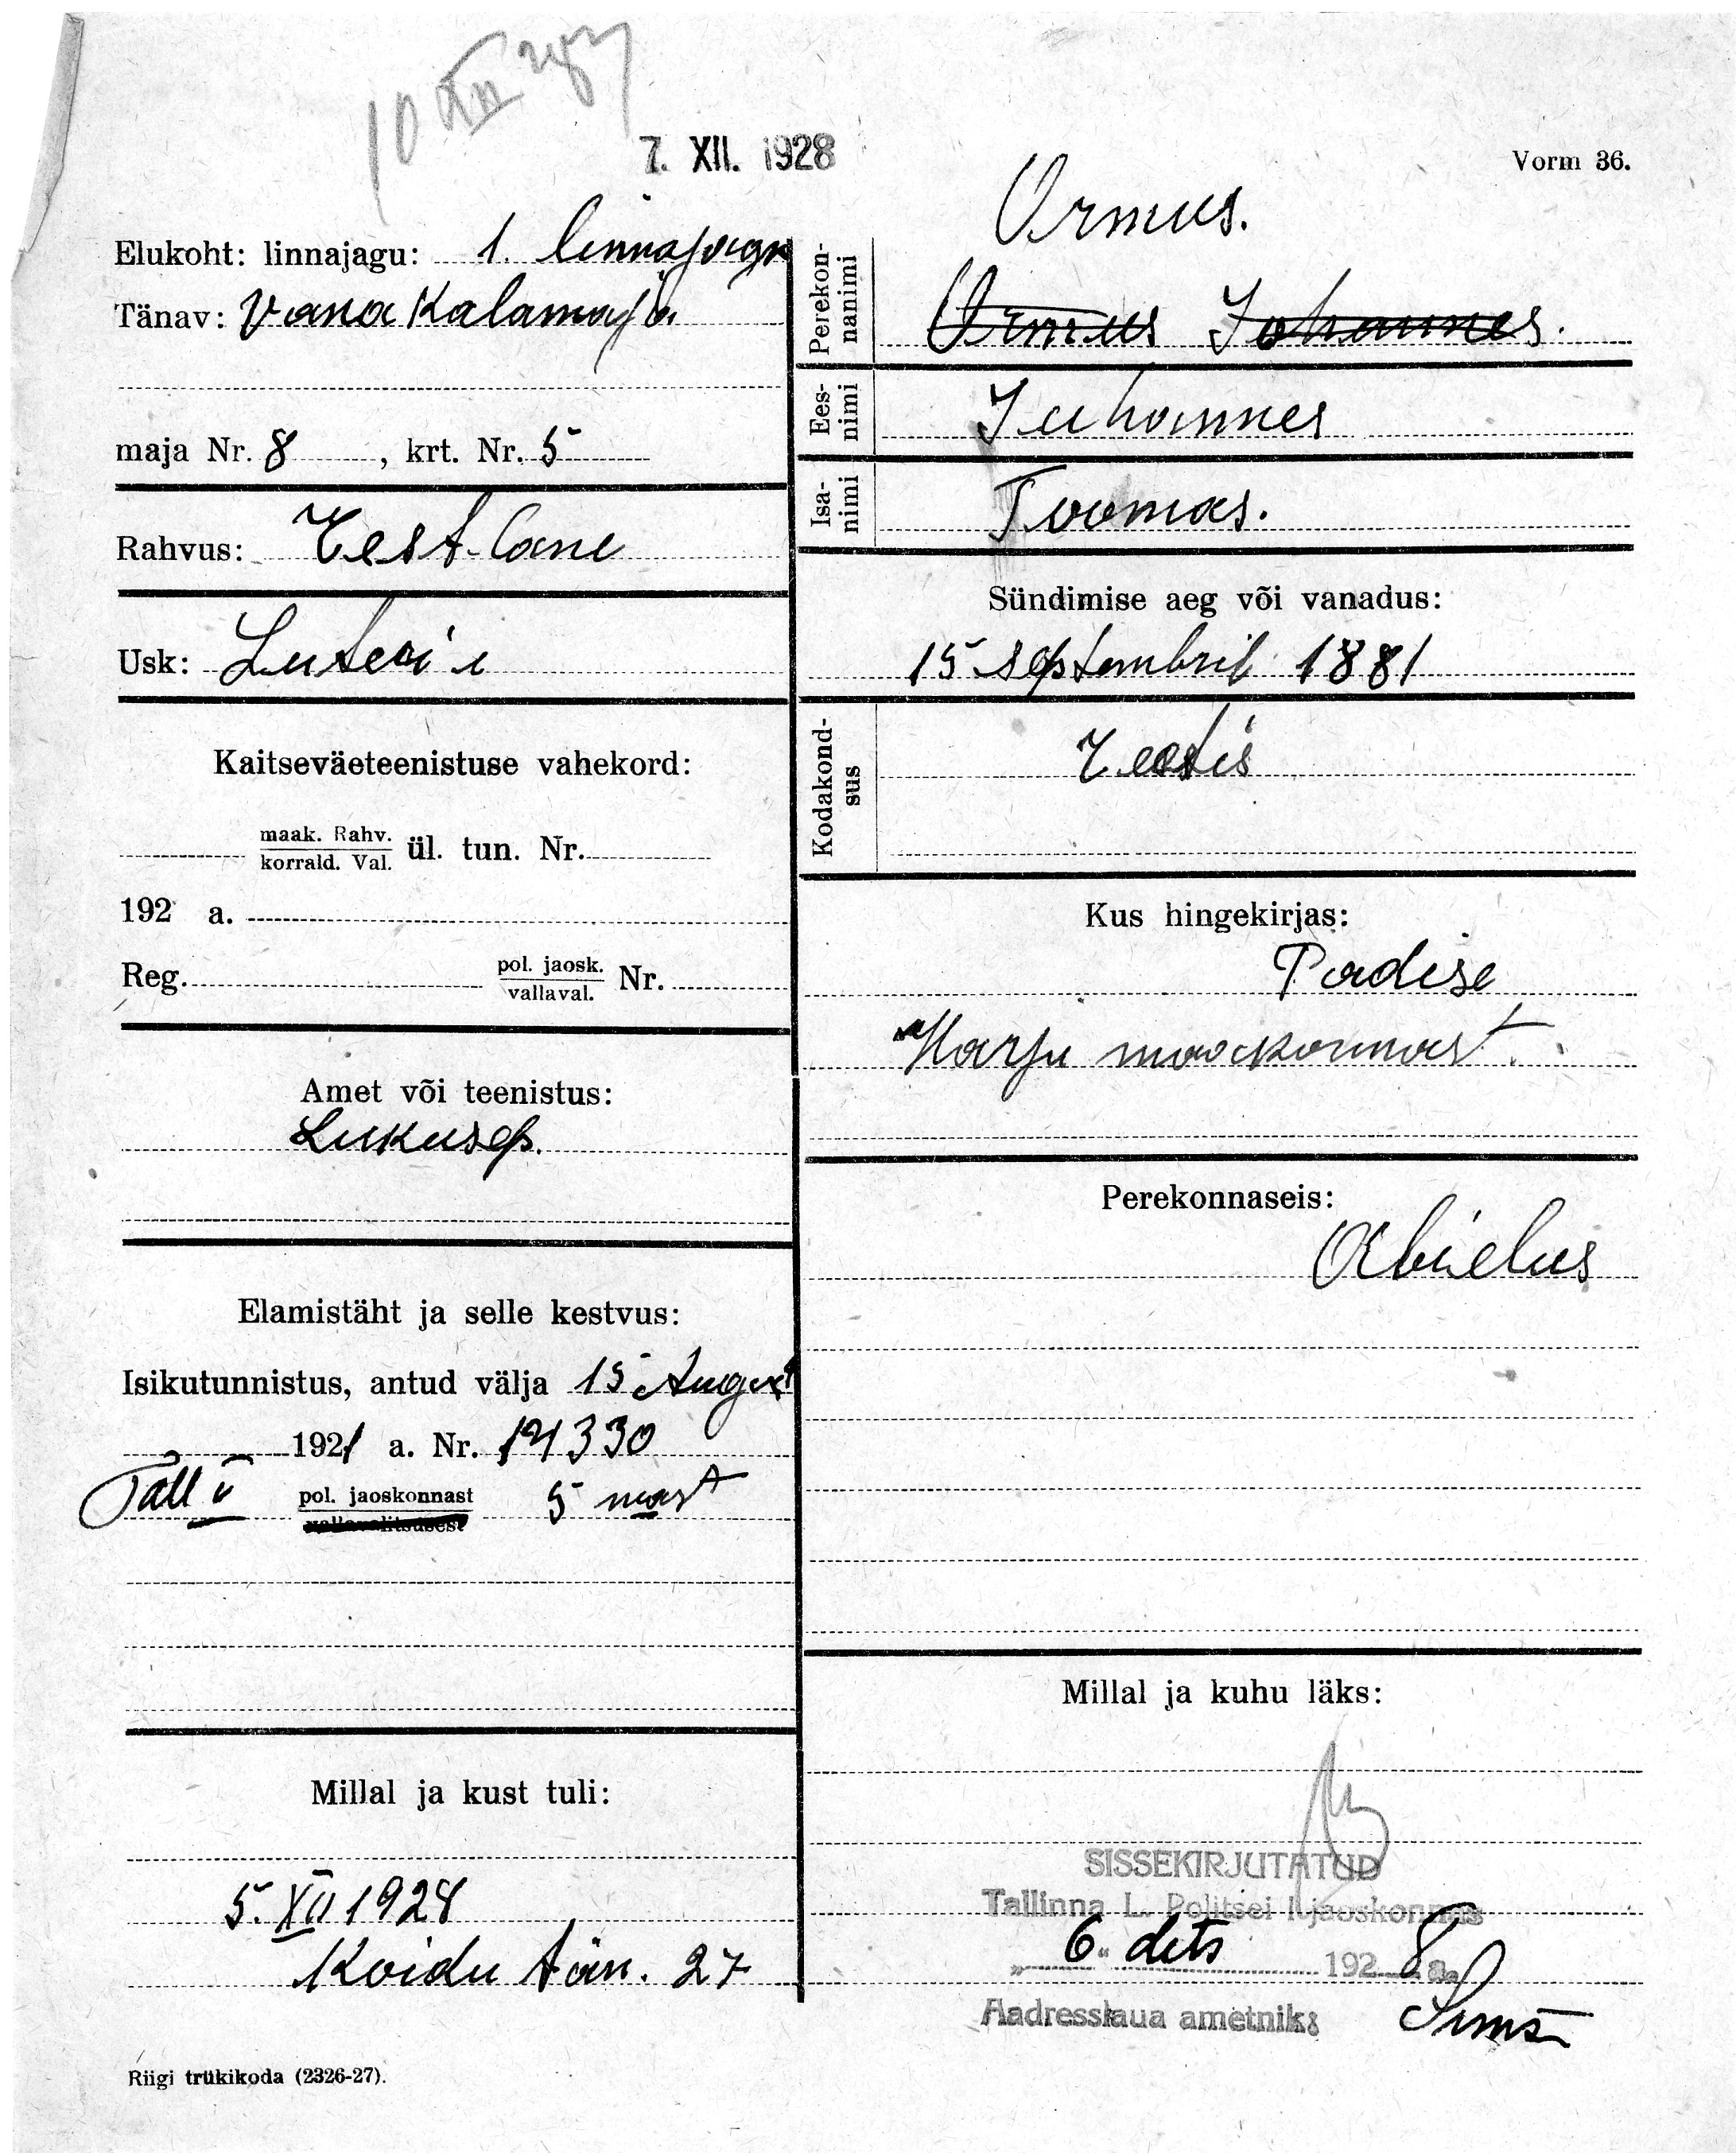 7. XII. 1928
Vorm 36.
Elukoht: linnajagu: 1. linnajagu
Tänav: Vana Kalamaja
maja Nr. 8, krt. Nr. 5
Rahvus: Eestlane
Usk: Luteri
Kaitseväeteenistuse vahekord:
maak. Rahv.
korrald. Val. ül. tun. Nr.
192 a.
Reg. pol. jaosk.
vallaval. Nr.
Amet või teenistus:
Lukusep.
Elamistäht ja selle kestvus:
Isikutunnistus, antud välja 15 August
1921 a. Nr. 14330
Tall. pol. jaoskonnast 5 mast
vallavalitsusest
Millal ja kust tuli:
5. XII 1928
Koidu tän. 27
Riigi trükikoda (2326-27).
Ormus.
Perekonnanimi Ormus Johannes.
Eesnimi Juhannes
Isanimi Toomas.
Sündimise aeg või vanadus:
15 septembril 1881
Kodakondsus Eestis
Kus hingekirjas:
Padise
Harju maakonnast.
Perekonnaseis:
Abielus
Millal ja kuhu läks:
SISSEKIRJUTATUD
Tallinna L. Politsei I jaoskonnas
„ 6 " dets 1928 a.
Aadresslaua ametnik: